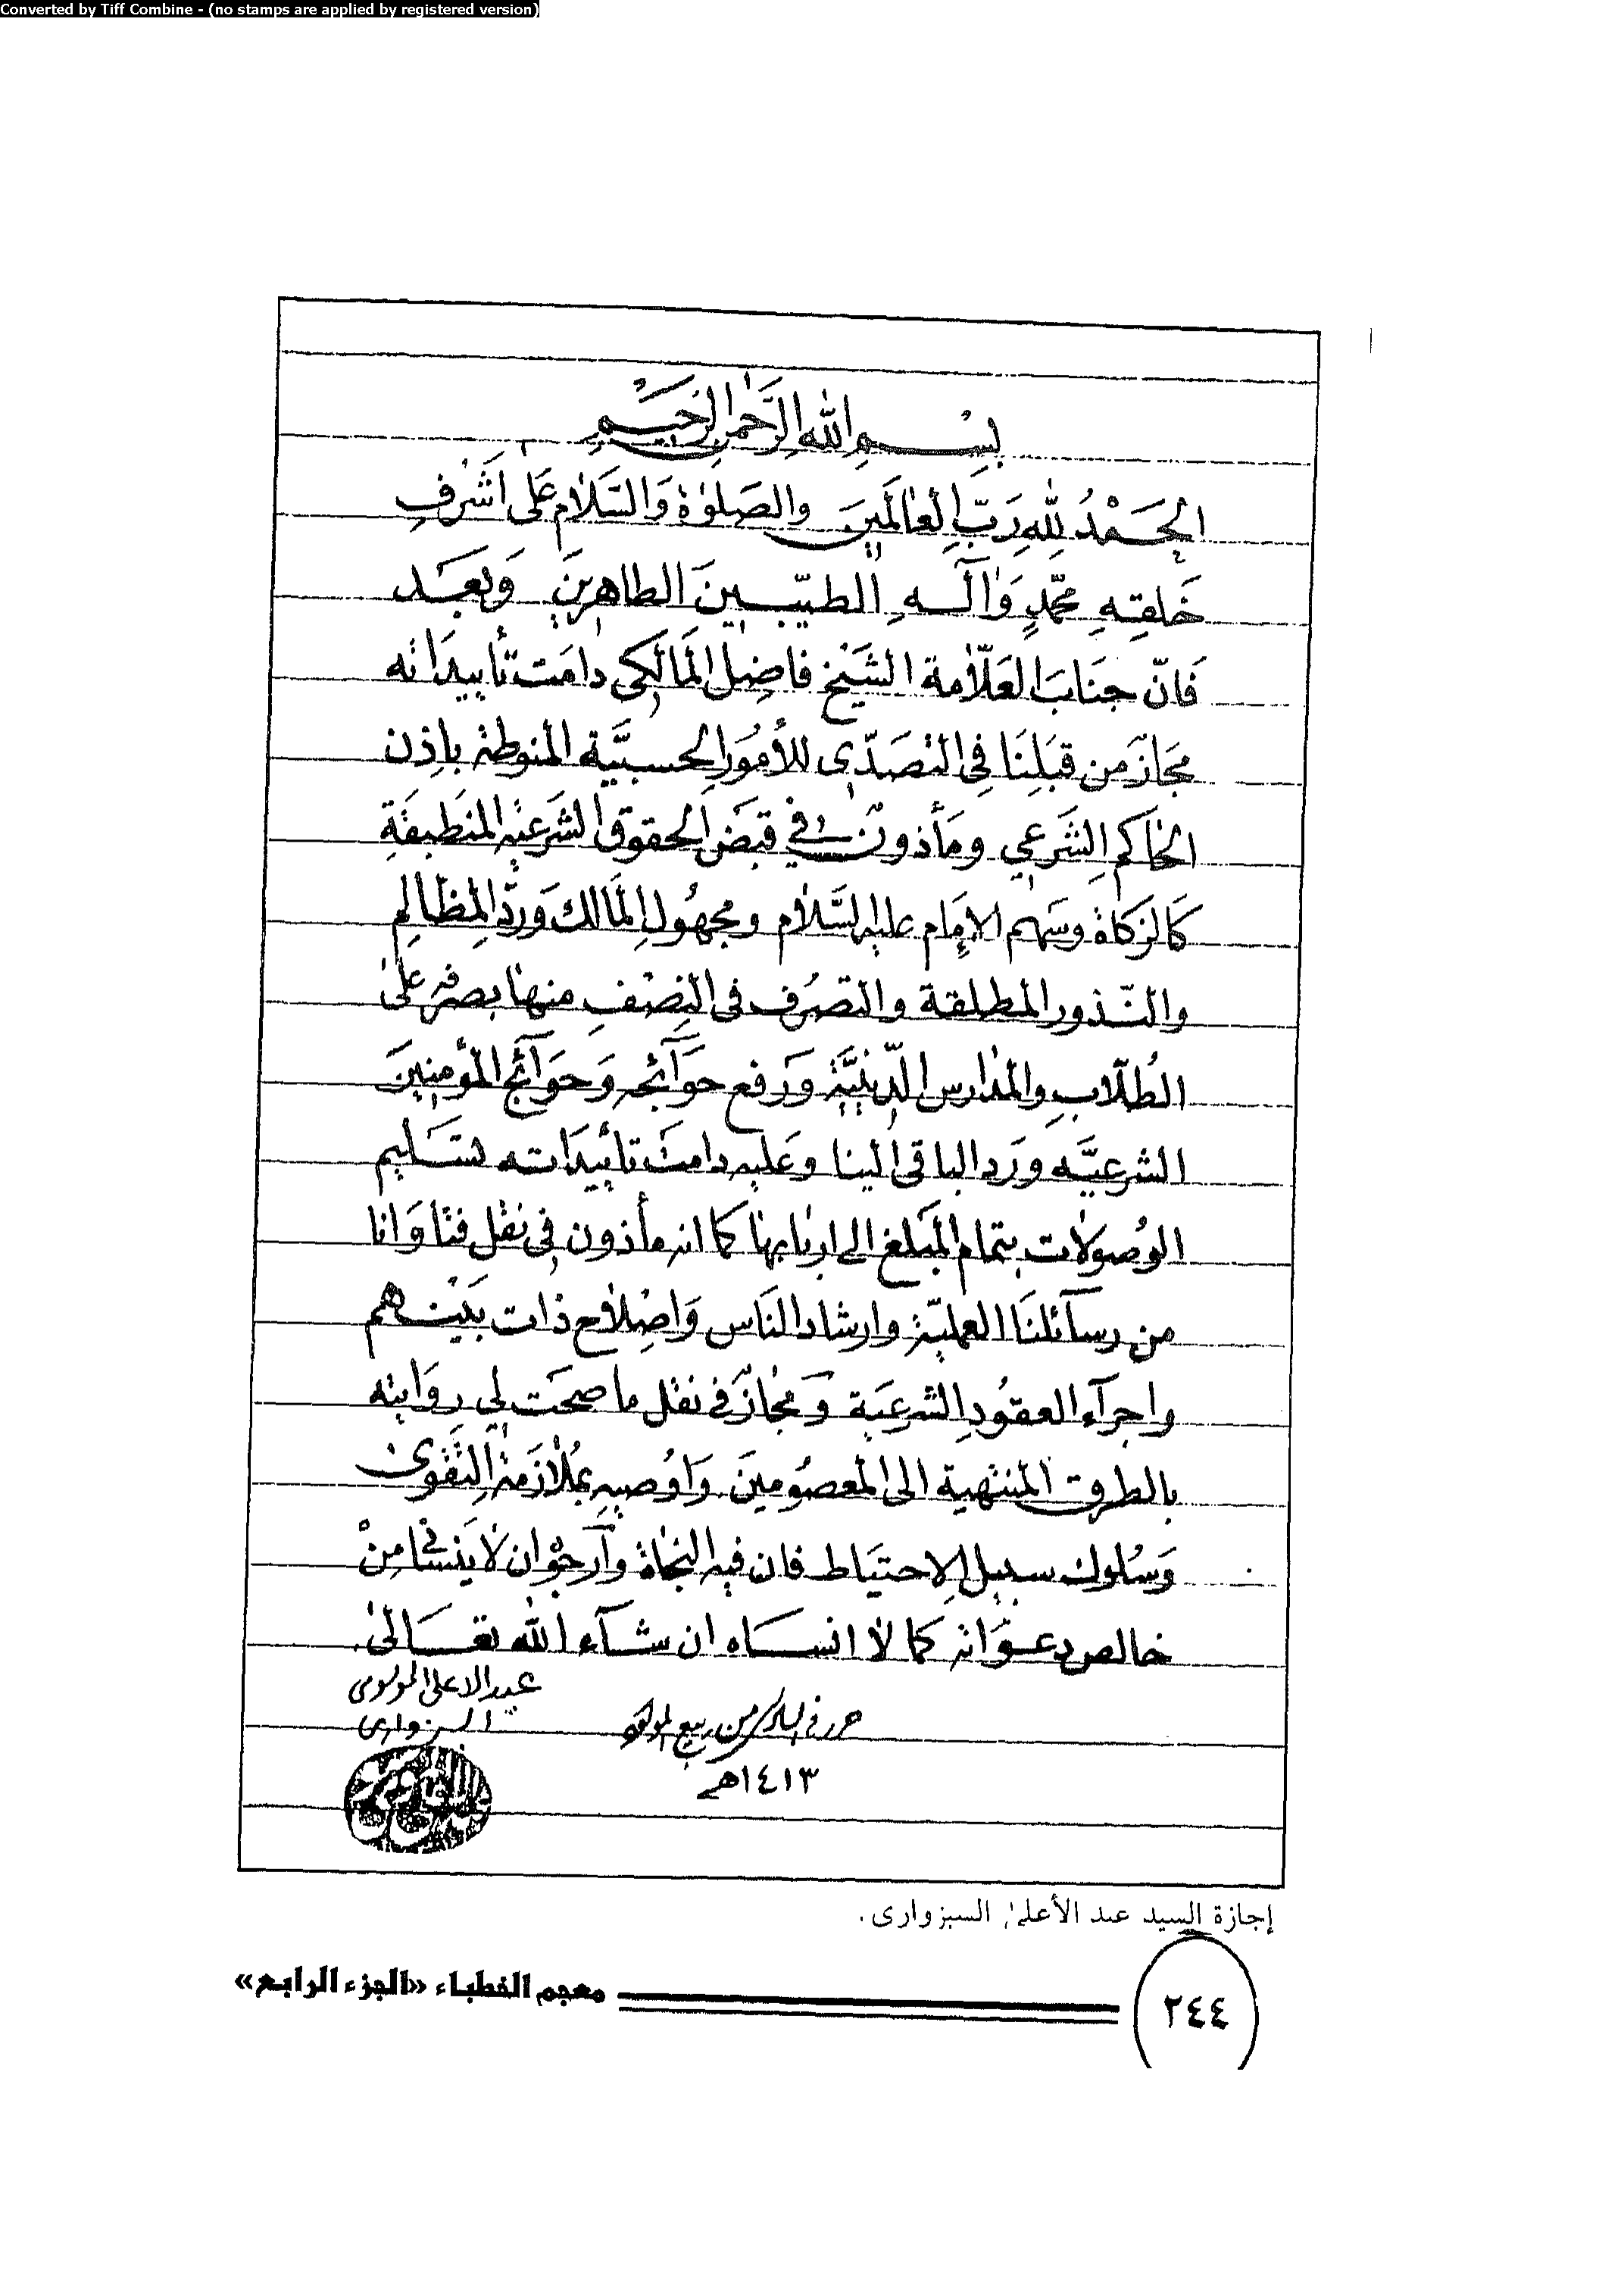 Converted by Tiff Combine - (no stamps are applied by registered version)
بِسْمِ اللهِ الرَّحْمٰنِ الرَّحِيْمِ
الْحَمْدُ لِلّٰهِ رَبِّ الْعَالَمَيْنَ والصَلوٰة وَالسَّلَامُ عَلى اَشْرَفِ
خَلقِهِ مُحمّدٍ وَآلِهِ الطيّبينَ الطاهِرينَ وَبَعَد
فَانّ جنَابَ العَلّامة الشَيْخ فاضِل المالكى دامَت تأييداته
مجَازٌ من قبَلِنَا فى التصَدّى للأمُورِ الحسبيَّة المنوطة باِذن
الحَاكم الشَرعي ومَأذونٌ في قبَض الحقوق الشَرعيّه المنَطبقة
كَالزكاة وسَهم الإمَام عليه السَّلام ومجهُول المَالك وَردِّ المظالِم
والنّذور المطلقة والتصَرف فى النِصْفِ منها بصرفه عَلىٰ
الطُلّابِ والمَدارس الدّينيَّة وَرَفع حوَآئجه وَحوَآئج المؤمنينَ
الشرعيَّه ورَد الباقى الينا وعَليه دامت تأييدَاته تسَليم
الوُصولات بتمام المبَلغ الى اربابها كما انه مأذون في نقل فتاوَانا
من رسآئلنَا العمليّة وارشاد النَاس وَاصْلاح ذات بَيْنهم
واجرآء العقوُدِ الشرعيَة وَمجَازٌ فى نقل ما صحَت لي رِوَايته
بالطرق المنتهية الى المعصوُمينَ وَاوُصيهِ بمُلازمة التّقوىٰ
وَسُلوك سبيل الاِحتيَاط فان فيه النجاة وآرجوْان لا يَنسَانى مِنْ
خالص دعوَاته كما لا انسَاه ان شآء الله تعَالىٰ.
عبد الاعلى الموسوى
السبزوارى
حرر في من ربيع المولود
١٤١٣هـ
إجازة السيد عبد الأعلىٰ السبزوارى.
معجم الخطباء «الجزء الرابع»
٢٤٤